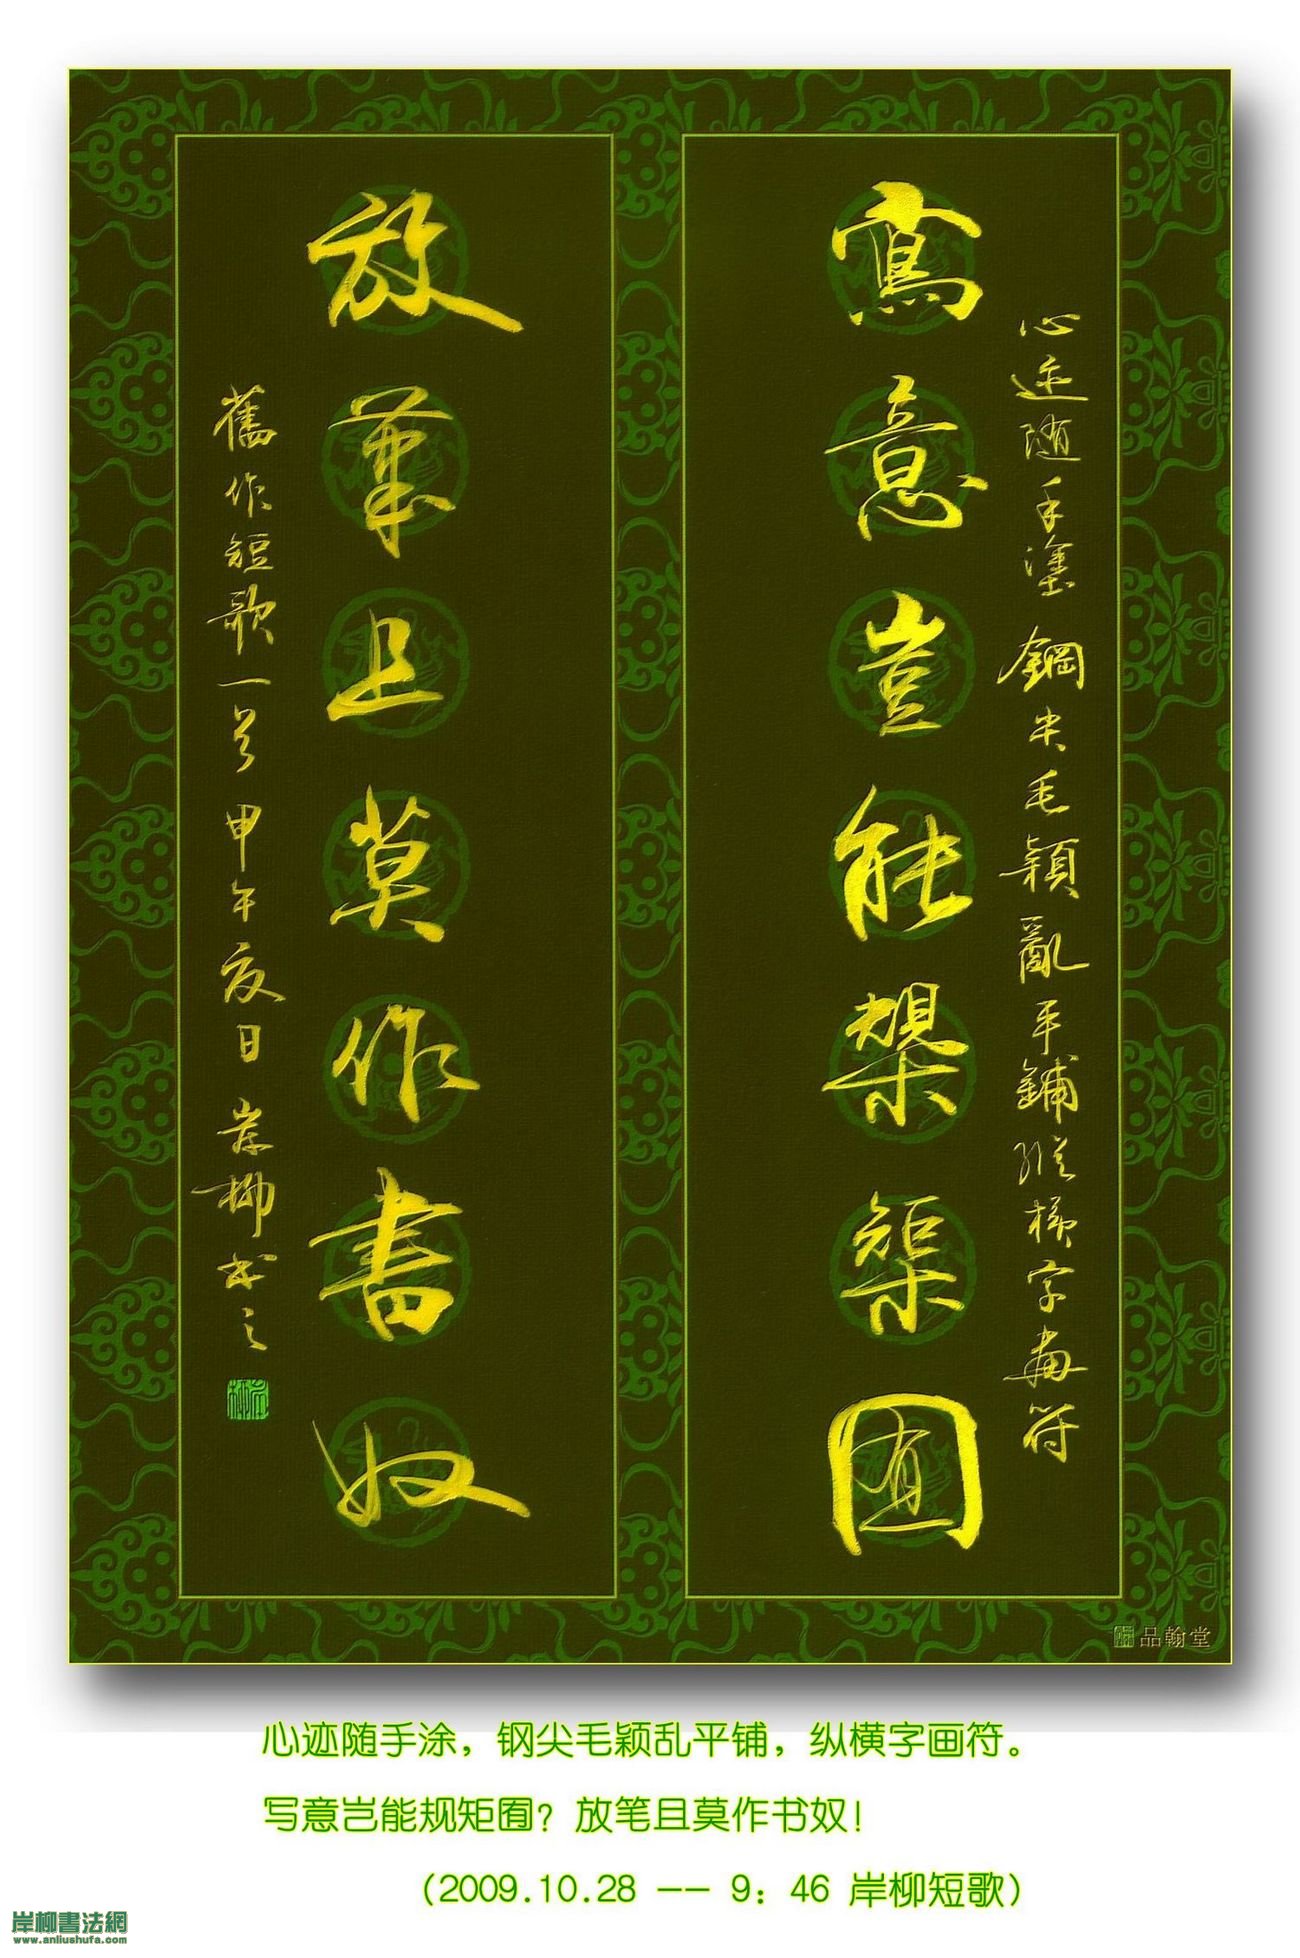 心迹随手塗 鋼尖毛穎亂平鋪 縱橫字畫符
寫意豈能槼榘囿
放筆且莫作書奴
舊作短歌一首 甲午夏日 岸柳書之
品翰堂
心迹随手涂，钢尖毛颖乱平铺，纵横字画符。
写意岂能规矩囿？放笔且莫作书奴！
（2009.10.28 -- 9：46 岸柳短歌）
岸柳書法網
www.anliushufa.com